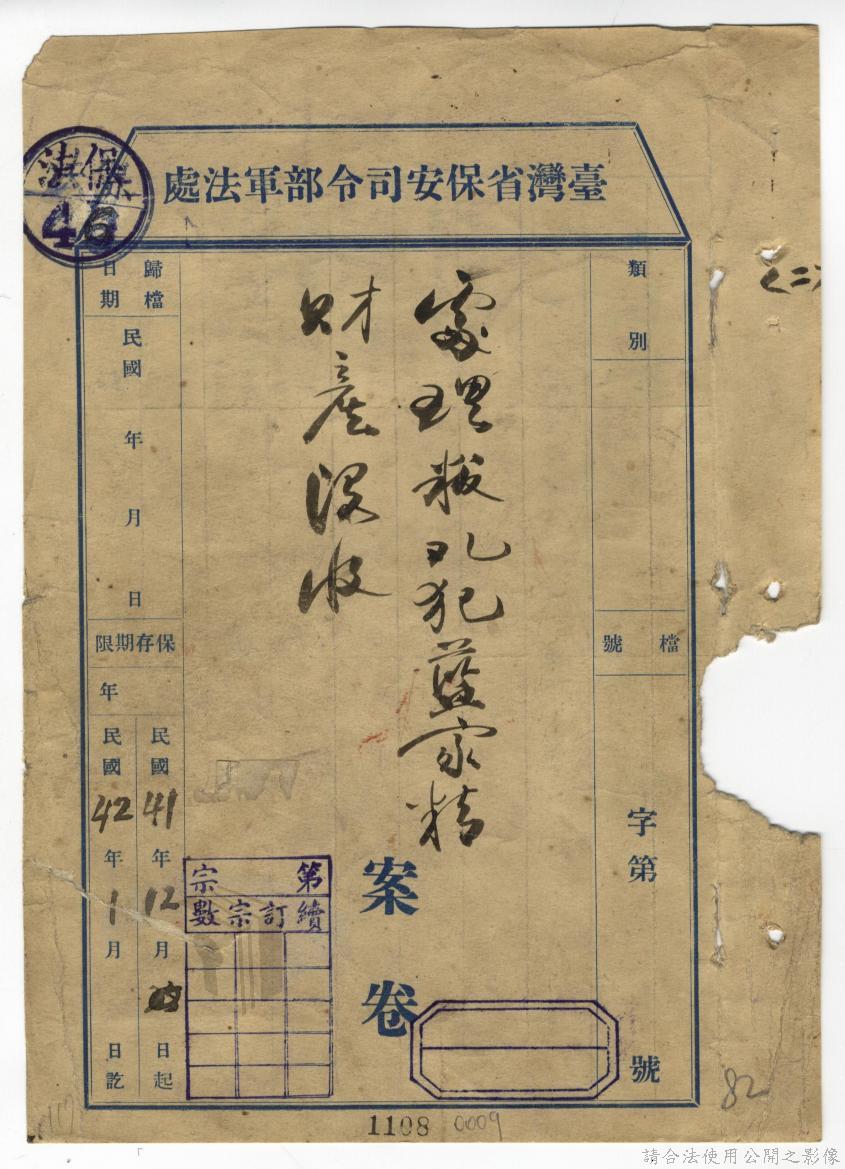 臺灣省保安司令部軍法處
保法
46
類別
檔號
字第
號
(二)
處理叛亂犯藍家精
財產沒收
案卷
歸檔日期
民國
年
月
日
保存期限
年
民國41年12月
日起
民國42年1月
日訖
第
宗
續訂宗數
1108
0009
82
請合法使用公開之影像